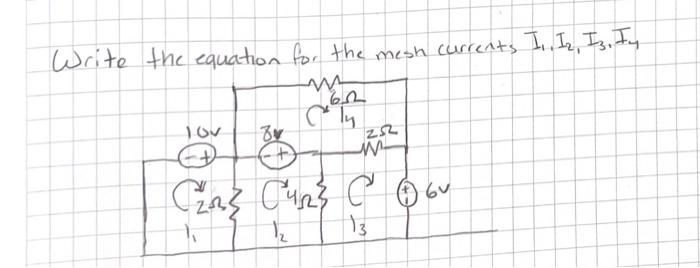 Write the equation for the mesh currents I₁, I₂, I₃, I₄
6Ω
I₄
10V 8V 2Ω
- + - + +
2Ω 4Ω 6V
I₁ I₂ I₃